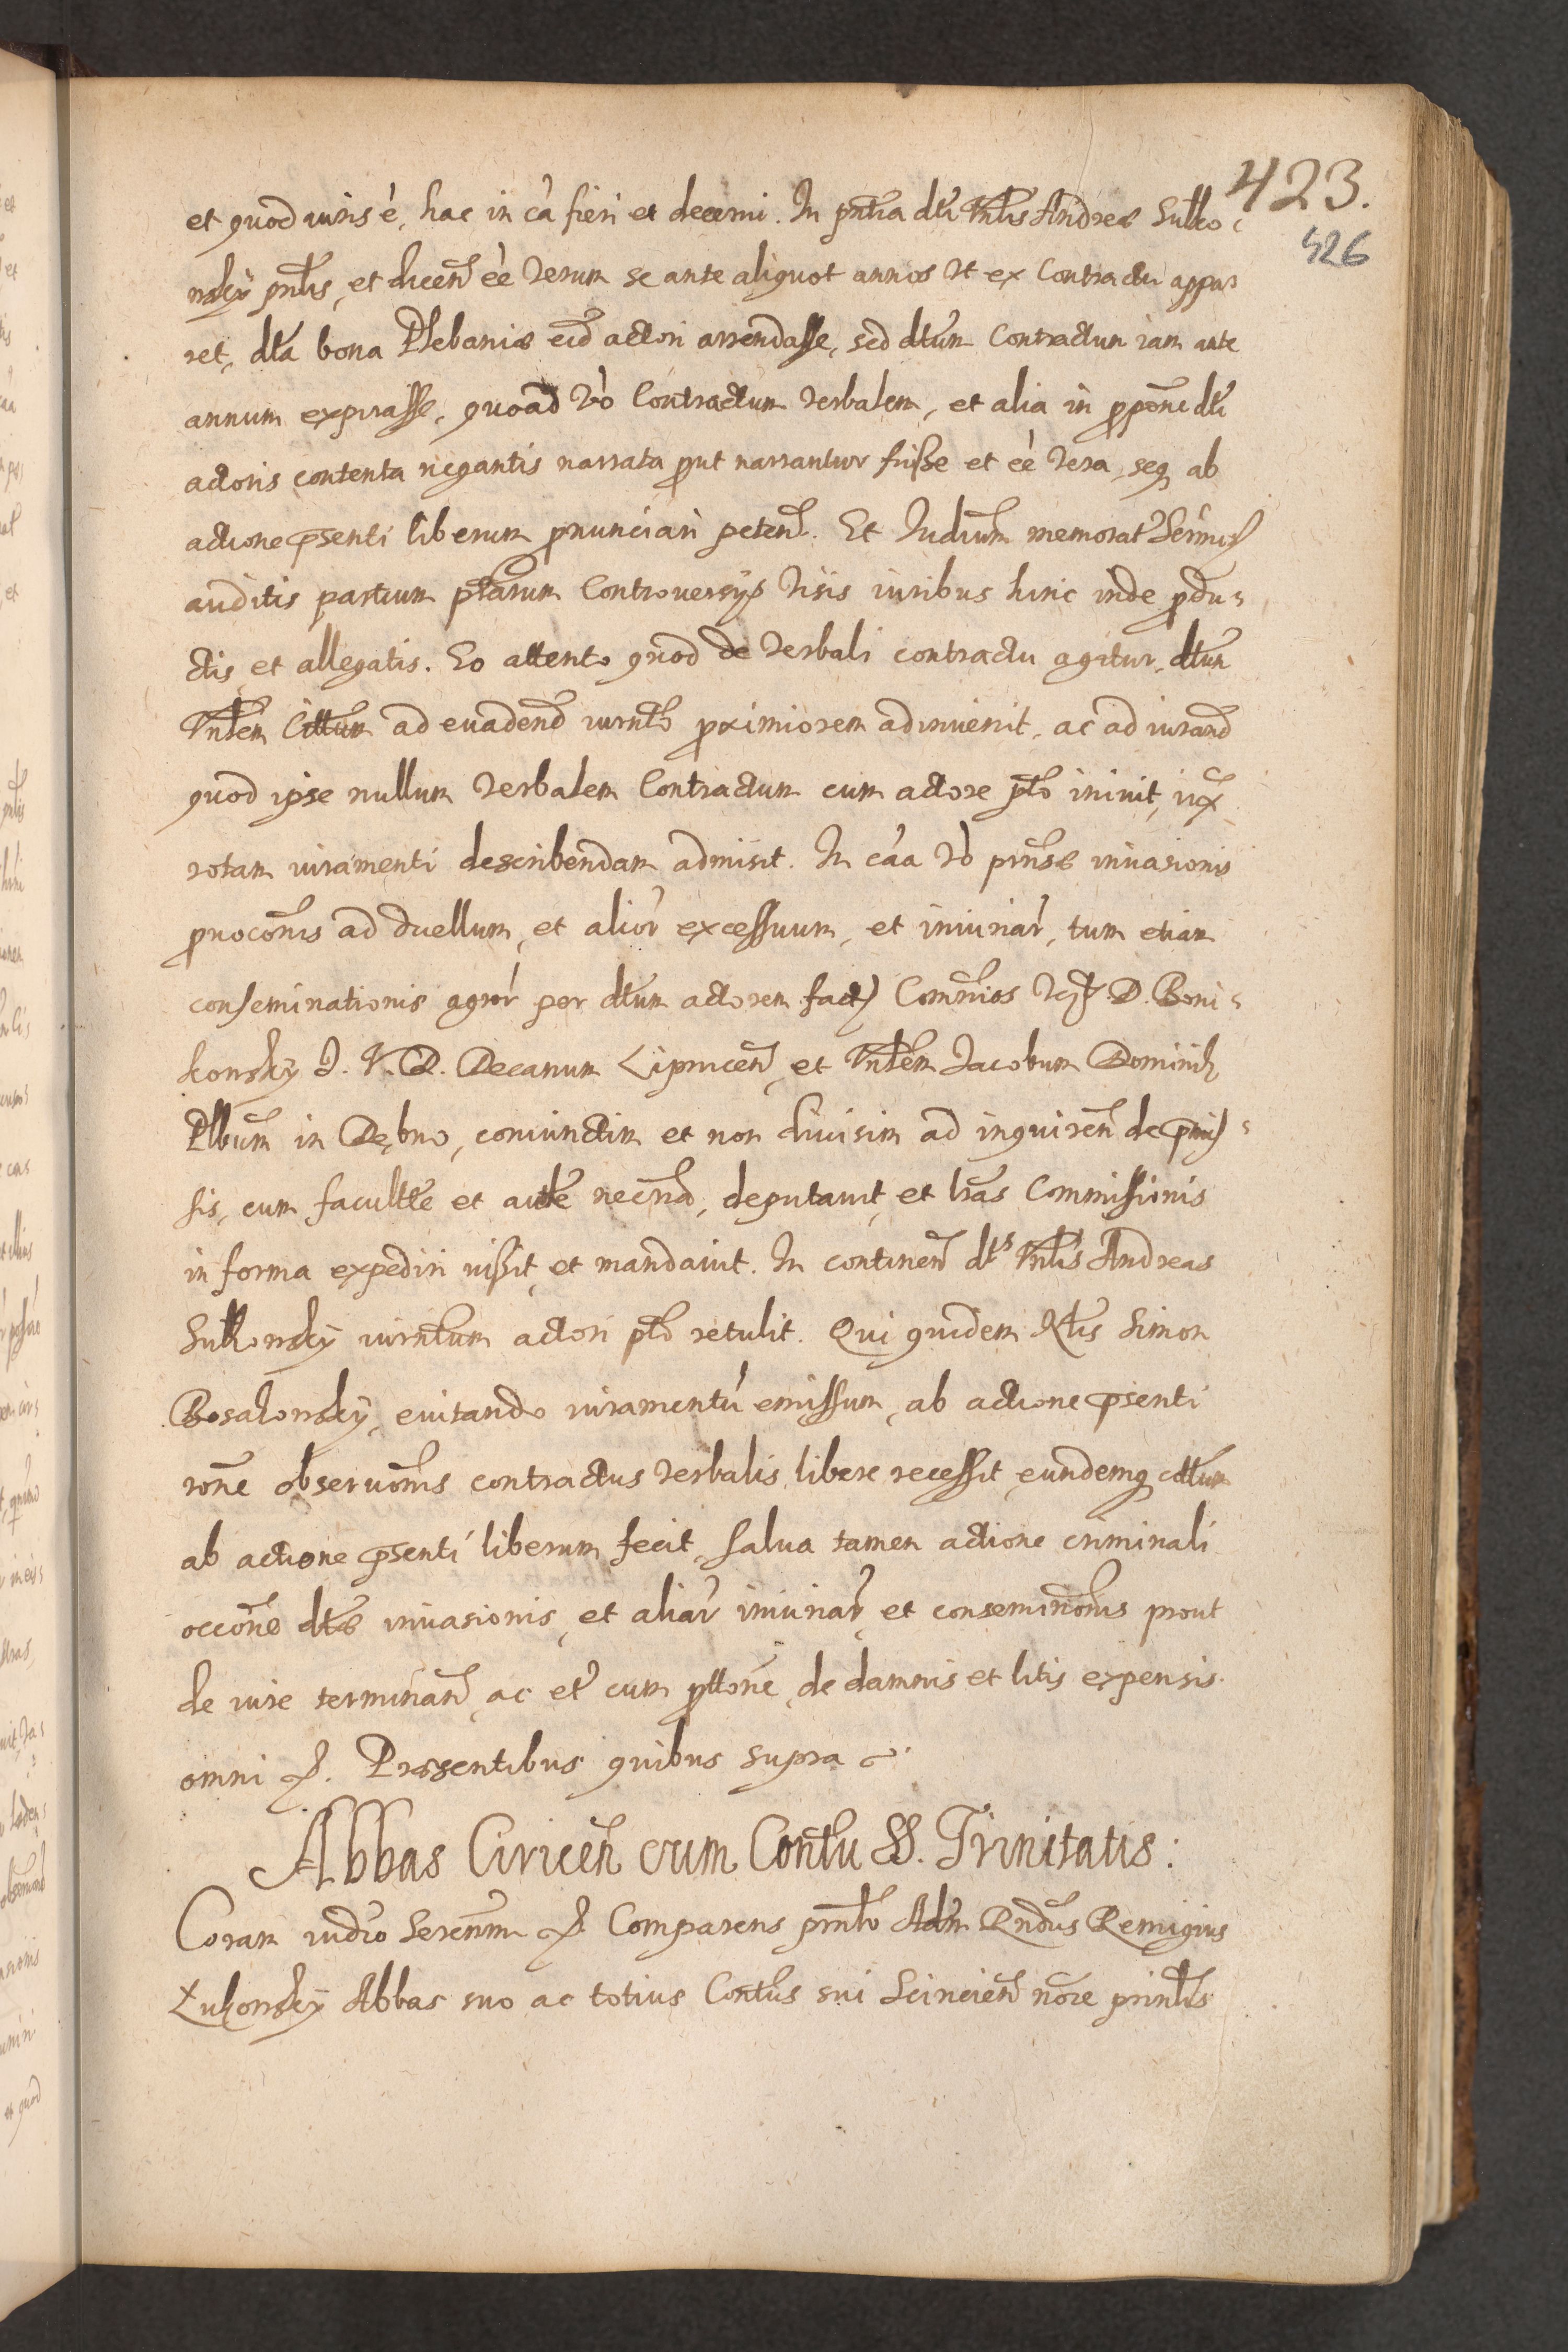 423.
426
et quod iuris é, hac in cá fieri et decerni. In pntia dti Vnlis Andreæ Sulko¬
nsky pntis, et dicen̄ èè verum se ante aliquot annos vt ex Contractu appa¬
ret, dta bona Plebaniæ eid actori arrendasse, sed dtum Contractum iam ante
annum expirasse, quoad vò Contractum verbalem, et alia in ppone dti
actoris contenta negantis narrata put narrantur fuisse et èè vera, seq ab
actione psenti liberum pnunciari peten̄. Et Iudium memorat Sermus
auditis partium ptarum Controuersys visis iuribus hinc inde pdu¬
ctis et allegatis. Eo attento quod de verbali contractu agitur, dtum
Vnlem Cittum ad euadend iurnto pximiorem adinuenit, ac ad iurand
quod ipse nullum verbalem Contractum cum actore pto iniuit, iux
rotam iuramenti describendam admisit. In cáa vò pmssæ inuasionis
puoconis ad duellum, et alior excessuum, et iniuriar, tum etiam
conseminationis agror per dtum actorem fact Commios D. Boni¬
konsky I. V. D. Decanum Lipnicen̄, et Vnlem Jacobum Dominik
Plbum in Dębno, coniunctim et non diuisim ad inquiren̄ de pmis¬
sis, cum facultte et autte necria, deputauit, et lras Commissionis
in forma expediri iussit, et mandauit. In continen̄ dts Vnlis Andreas
Sulkonsky iurntum actori pto retulit. Qui quidem Ntis Simon
Bosakonsky, euitando iuramentú emissum, ab actione psenti
rone obseruonis contractus verbalis, libere recessit, eundemq cittum
ab actione psenti liberum fecit, salua tamen actione criminali
occone dtæ inuasionis, et aliar iniuriar, et conseminonis prout
de iure terminan̄, ac et cum pttone, de damnis et litis expensis.
omni &. Præsentibus quibus supra
Abbas Ciricen̄ cum Contu SS. Trinitatis:
Coram iudio Serenmi &. Comparens prnlto Adm Rndus Remigius
Łukonsky Abbas suo ac totius Contus sui Sciricien̄ nore prinlts